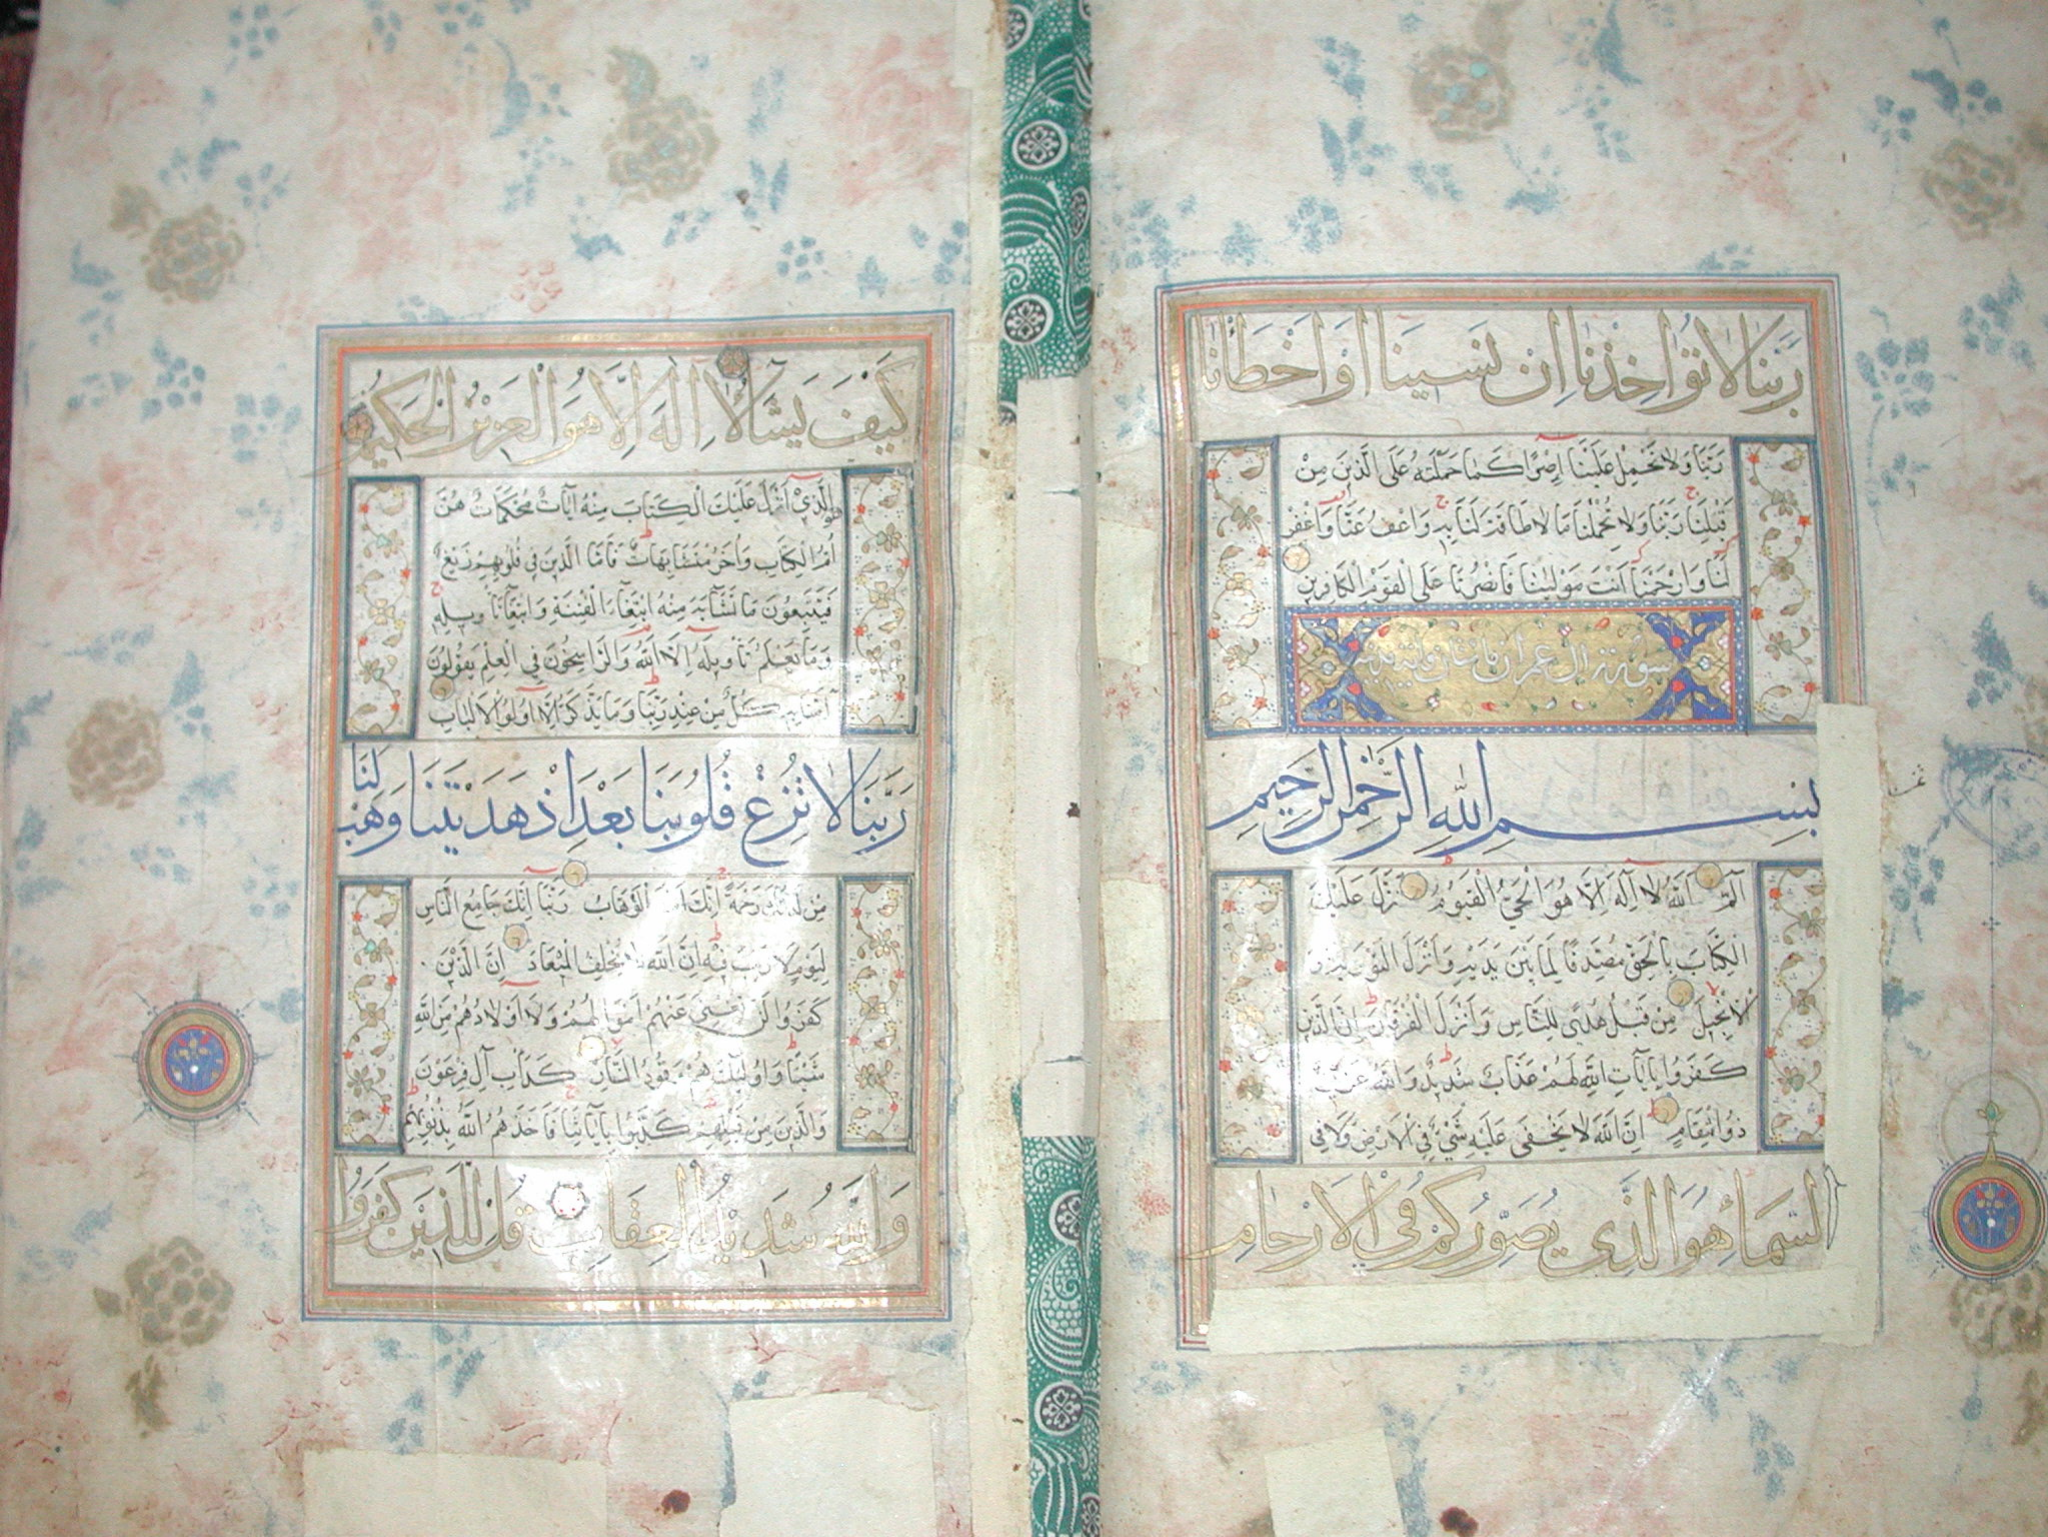 رَبَّنَا لَا تُوَاخِذْنَا اِنْ نَسِينَا اَوْ اَخْطَأْنَا
رَبَّنَا وَلَا تَحْمِلْ عَلَيْنَا اِصْرًا كَمَا حَمَلْتَهُ عَلَى الَّذِينَ مِنْ
قَبْلِنَا رَبَّنَا وَلَا تُحَمِّلْنَا مَا لَا طَاقَةَ لَنَا بِهِ وَاعْفُ عَنَّا وَاغْفِرْ
لَنَا وَارْحَمْنَا اَنْتَ مَوْلَينَا فَانْصُرْنَا عَلَى الْقَوْمِ الْكَافِرِينَ
سورة ال عمران مائتان
بِسْمِ اللَّهِ الرَّحْمٰنِ الرَّحِيمِ
الٓمٓ اَللَّهُ لَا اِلَهَ اِلَّا هُوَ الْحَيُّ الْقَيُّومُ نَزَّلَ عَلَيْكَ
الْكِتَابَ بِالْحَقِّ مُصَدِّقًا لِمَا بَيْنَ يَدَيْهِ وَاَنْزَلَ التَّوْرَيةَ وَ
الْاِنْجِيلَ مِنْ قَبْلُ هُدًى لِلنَّاسِ وَاَنْزَلَ الْفُرْقَانَ اِنَّ الَّذِينَ
كَفَرُوا بِاٰيَاتِ اللَّهِ لَهُمْ عَذَابٌ شَدِيدٌ وَاللَّهُ عَزِيزٌ
ذُو انْتِقَامٍ اِنَّ اللَّهَ لَا يَخْفَى عَلَيْهِ شَيْءٌ فِي الْاَرْضِ وَلَا فِي
السَّمَاءِ هُوَ الَّذِي يُصَوِّرُكُمْ فِي الْاَرْحَامِ
كَيْفَ يَشَاءُ لَا اِلَهَ اِلَّا هُوَ الْعَزِيزُ الْحَكِيمُ
هُوَ الَّذِي اَنْزَلَ عَلَيْكَ الْكِتَابَ مِنْهُ اٰيَاتٌ مُحْكَمَاتٌ هُنَّ
اُمُّ الْكِتَابِ وَاُخَرُ مُتَشَابِهَاتٌ فَاَمَّا الَّذِينَ فِي قُلُوبِهِمْ زَيْغٌ
فَيَتَّبِعُونَ مَا تَشَابَهَ مِنْهُ ابْتِغَاءَ الْفِتْنَةِ وَابْتِغَاءَ تَاْوِيلِهِ
وَمَا يَعْلَمُ تَاْوِيلَهُ اِلَّا اللَّهُ وَالرَّاسِخُونَ فِي الْعِلْمِ يَقُولُونَ
اٰمَنَّا بِهِ كُلٌّ مِنْ عِنْدِ رَبِّنَا وَمَا يَذَّكَّرُ اِلَّا اُولُوا الْاَلْبَابِ
رَبَّنَا لَا تُزِغْ قُلُوبَنَا بَعْدَ اِذْ هَدَيْتَنَا وَهَبْ لَنَا
مِنْ لَدُنْكَ رَحْمَةً اِنَّكَ اَنْتَ الْوَهَّابُ رَبَّنَا اِنَّكَ جَامِعُ النَّاسِ
لِيَوْمٍ لَا رَيْبَ فِيهِ اِنَّ اللَّهَ لَا يُخْلِفُ الْمِيعَادَ اِنَّ الَّذِينَ
كَفَرُوا لَنْ تُغْنِيَ عَنْهُمْ اَمْوَالُهُمْ وَلَا اَوْلَادُهُمْ مِنَ اللَّهِ
شَيْئًا وَاُولَئِكَ هُمْ وَقُودُ النَّارِ كَدَاْبِ اٰلِ فِرْعَوْنَ
وَالَّذِينَ مِنْ قَبْلِهِمْ كَذَّبُوا بِاٰيَاتِنَا فَاَخَذَهُمُ اللَّهُ بِذُنُوبِهِمْ
وَاللَّهُ شَدِيدُ الْعِقَابِ قُلْ لِلَّذِينَ كَفَرُوا